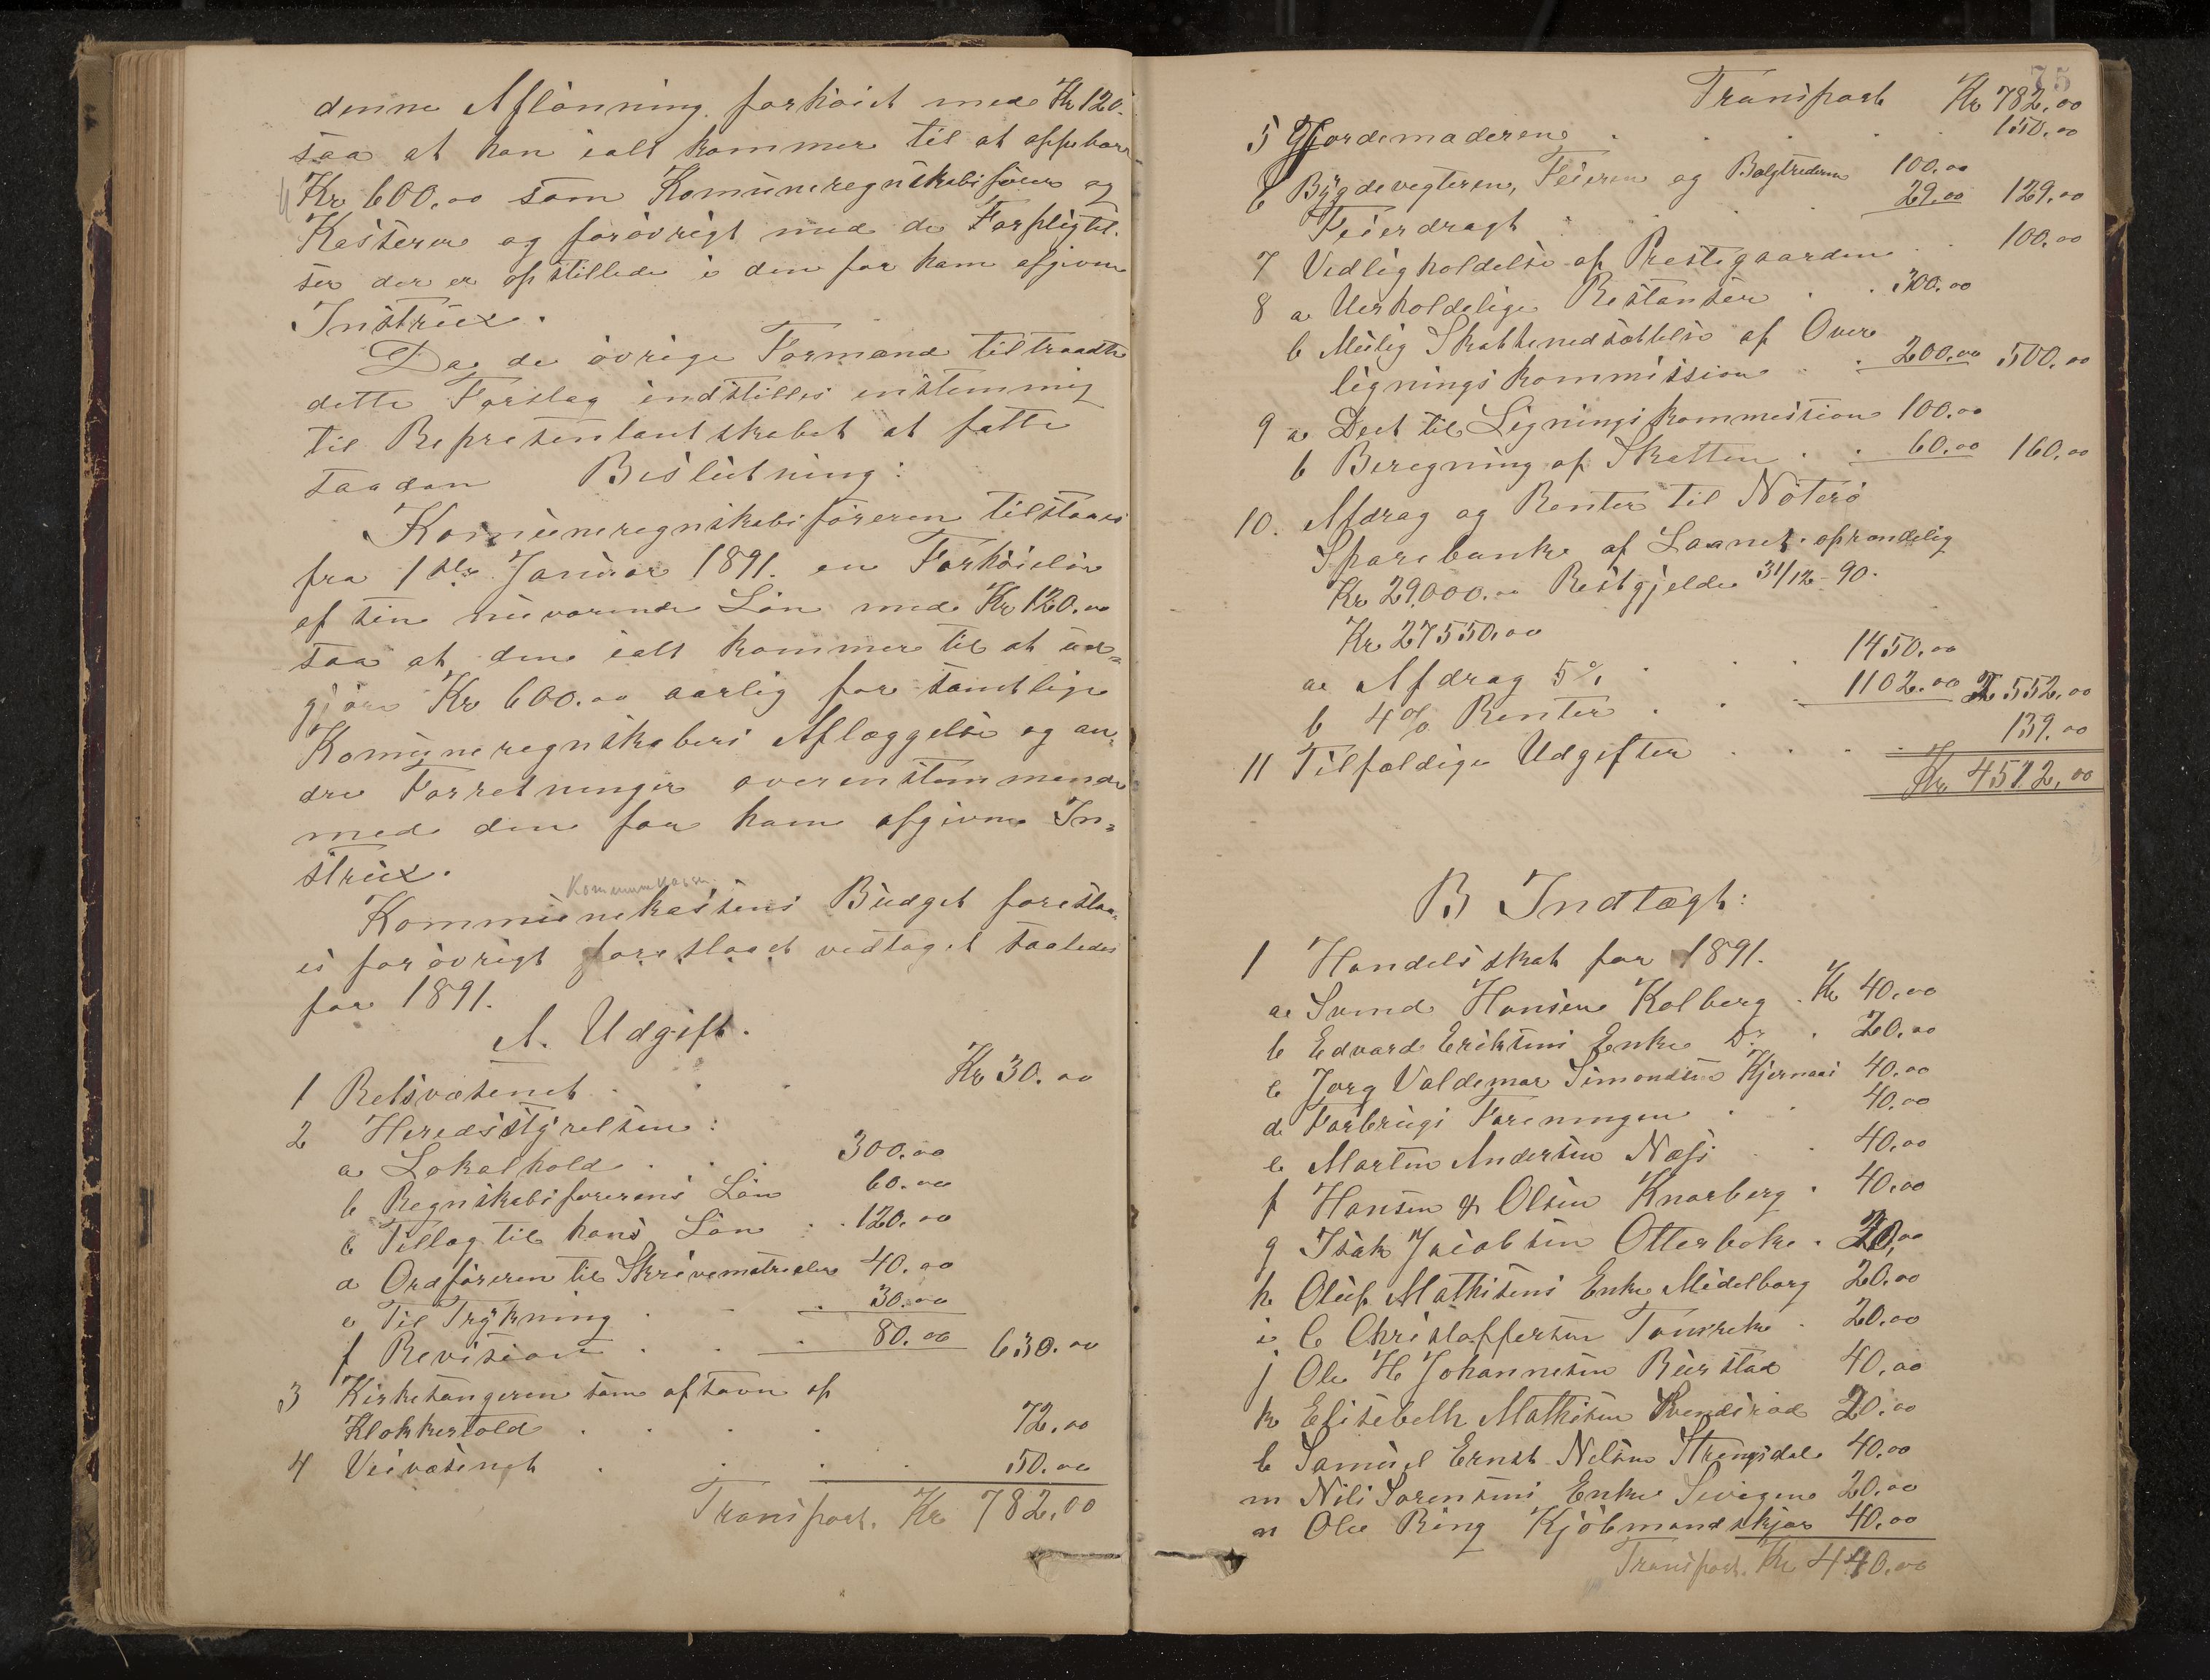 denne Aflønning forhøiet med Kr 120.
saa at han ialt kommer til at oppebære
Kr 600.00 som Komuneregnskabsfører og
Kasserer og forøvrigt med de Forpligtel-
ser der er opstillede i den for ham afgivne
Instrux.
Da de øvrige Formænd tiltraadte
dette Forslag indstilles enstemmig
til Representantskabet at fatte
saadan Beslutning:
Komuneregnskabsføreren tilstaaes
fra 1ste Januar 1891. en Forhøielse
af sin nuværende Løn med Kr 120.00
saa at den ialt kommer til at ud=
gjøre Kr 600.00 aarlig for samtlige
Komuneregnskabers Aflæggelse og an=
dre Forretninger overensstemmende
med den for ham afgivne In=
strux.
Kommunekassen
Kommunekassens Budget foreslaa-
es forøvrigt foreslaaet vedtaget saaledes
for 1891.
A. Udgift.
1 Retsvæsenet . . . Kr 30.00
2 Heredsstyrelsen:
a Lokalhold . . . 300.00
b Regnskabsførerens Løn 60.00
c Tillæg til hans Løn . . 120.00
d Ordføreren til Skrivematrialier 40.00
e Til Trykning . . . 30.00
f Revision . . . 80.00 630.00
3 Kirkesangeren som afsavn af
Klokkertold . . . . 72.00
4 Veivæsenet . . . . 50.00
Transport. Kr 782,00
75
Transport Kr 782,00
5 Gjordemoderen . . . . . 150,00
6 Bygdevægteren, Feieren og Bælgtrederen 100,00
Feierdragt . . . 29.00 129,00
7 Vedligholdelse af Prestegaarden . . 100,00
8 a Uerholdelige Restanser . . 300.00
b Mulig Skattenedsættelse af Over
ligningskommission . . 200.00 500,00
9 a Deet til Ligningskommission 100.00
b Beregning af Skatten . . 60.00 160,00
10. Afdrag og Renter til Nøterø
Sparebank af Laanet oprindelig
Kr 29,000.00 Restgjeld 31/12-90.
Kr 27550,00
a Afdrag 5% . . . 1450.00
b 4% Renter . . . 1102.00 2552,00
11 Tilfældige Udgifter . . . . 139.00
Kr. 4512,00
B Indtægt:
1 Handelsskat for 1891.
a Svend Hansen Kolberg . Kr 40,00
b Edvard Eriksens Enke Do . 20,00
c Jørg Valdemar Simonsen Kjernaas 40,00
d Forbrugs Foreningen . . 40,00
e Martin Andersen Næss . . 40,00
f Hansen & Olsen Knarberg . 40,00
g Isak Jacobsen Otterbeke . 20,00
h Oluf Mathisens Enke Midelborg 20.00
i C Christoffersen . 20,00
j Ole H Johannesen Buerstad 40,00
k Elisebeth Mathisen 20.00
l Samuel Ernst Nilsen Strengsdal 40,00
m Nils Sørensens Enke 20,00
n Ole Ring Kjøbmandskjær 40,00
Transport. Kr 440,00